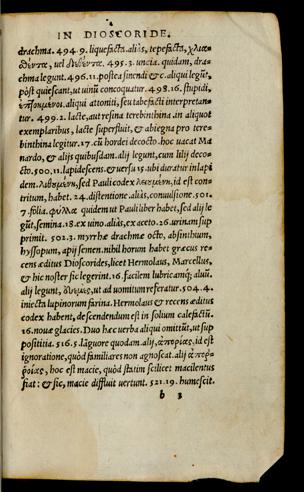 IN DIOSCORIDE.
drachma. 494.9. liquefacta. aliàs, tepefacta, χλιαν-
θέντα, uel
495.3. uncia. quidam, dra-
chma legunt. 496.11. postea sinendi &c. aliqui legũt,
pòst quiescant, ut uinũ concoquatur. 498.16. stupidi,
aliqui attoniti, seu tabefacti interpretan-
tur. 499.2. lacte, aut resina terebinthina. in aliquot
exemplaribus, lacte superfluit, & abiegna pro tere-
binthina legitur. 27. cũ hordei decocto. hoc uacat Ma
nardo, & alijs quibusdam. alij legunt, cum lilij deco-
cto. 500.11. lapidescens. & uersu 15. ubi duratur in lapi
dem. sed Pauli codex λευμένη, id est con-
tritum, habet. 24. distentione. aliàs, conuulsione. 501.
7. folia. φύλλα quidem ut Pauli liber habet, sed alij le
gũt, semina. 18. ex uino. aliàs, ex aceto. 26. urinam sup
primit. 502.3. myrrhæ drachmæ octo, absinthium,
hyssopum, apij semen. nihil horum habet græcus re-
cens æditus Dioscorides, licet Hermolaus, Marcellus,
& hic noster sic legerint. 16. facilem lubricamq; aluũ.
alij legunt, ut ad uomitum referatur. 504.4.
iniecta lupinorum farina. Hermolaus & recens æditus
codex habent, descendendum est in solium calefactũ.
16. nouæ glacies. Duo hæc uerba aliqui omittũt, ut sup
posititia. 516.5. lãguore quodam. alij, ἀπορίας, id est
ignoratione, quòd familiares non agnoscat. alij ἀπορ-
ροίας, hoc est macie, quòd statim scilicet macilentus
fiat: & sic, macie diffluit uertunt. 521.19. humescit.
b 3